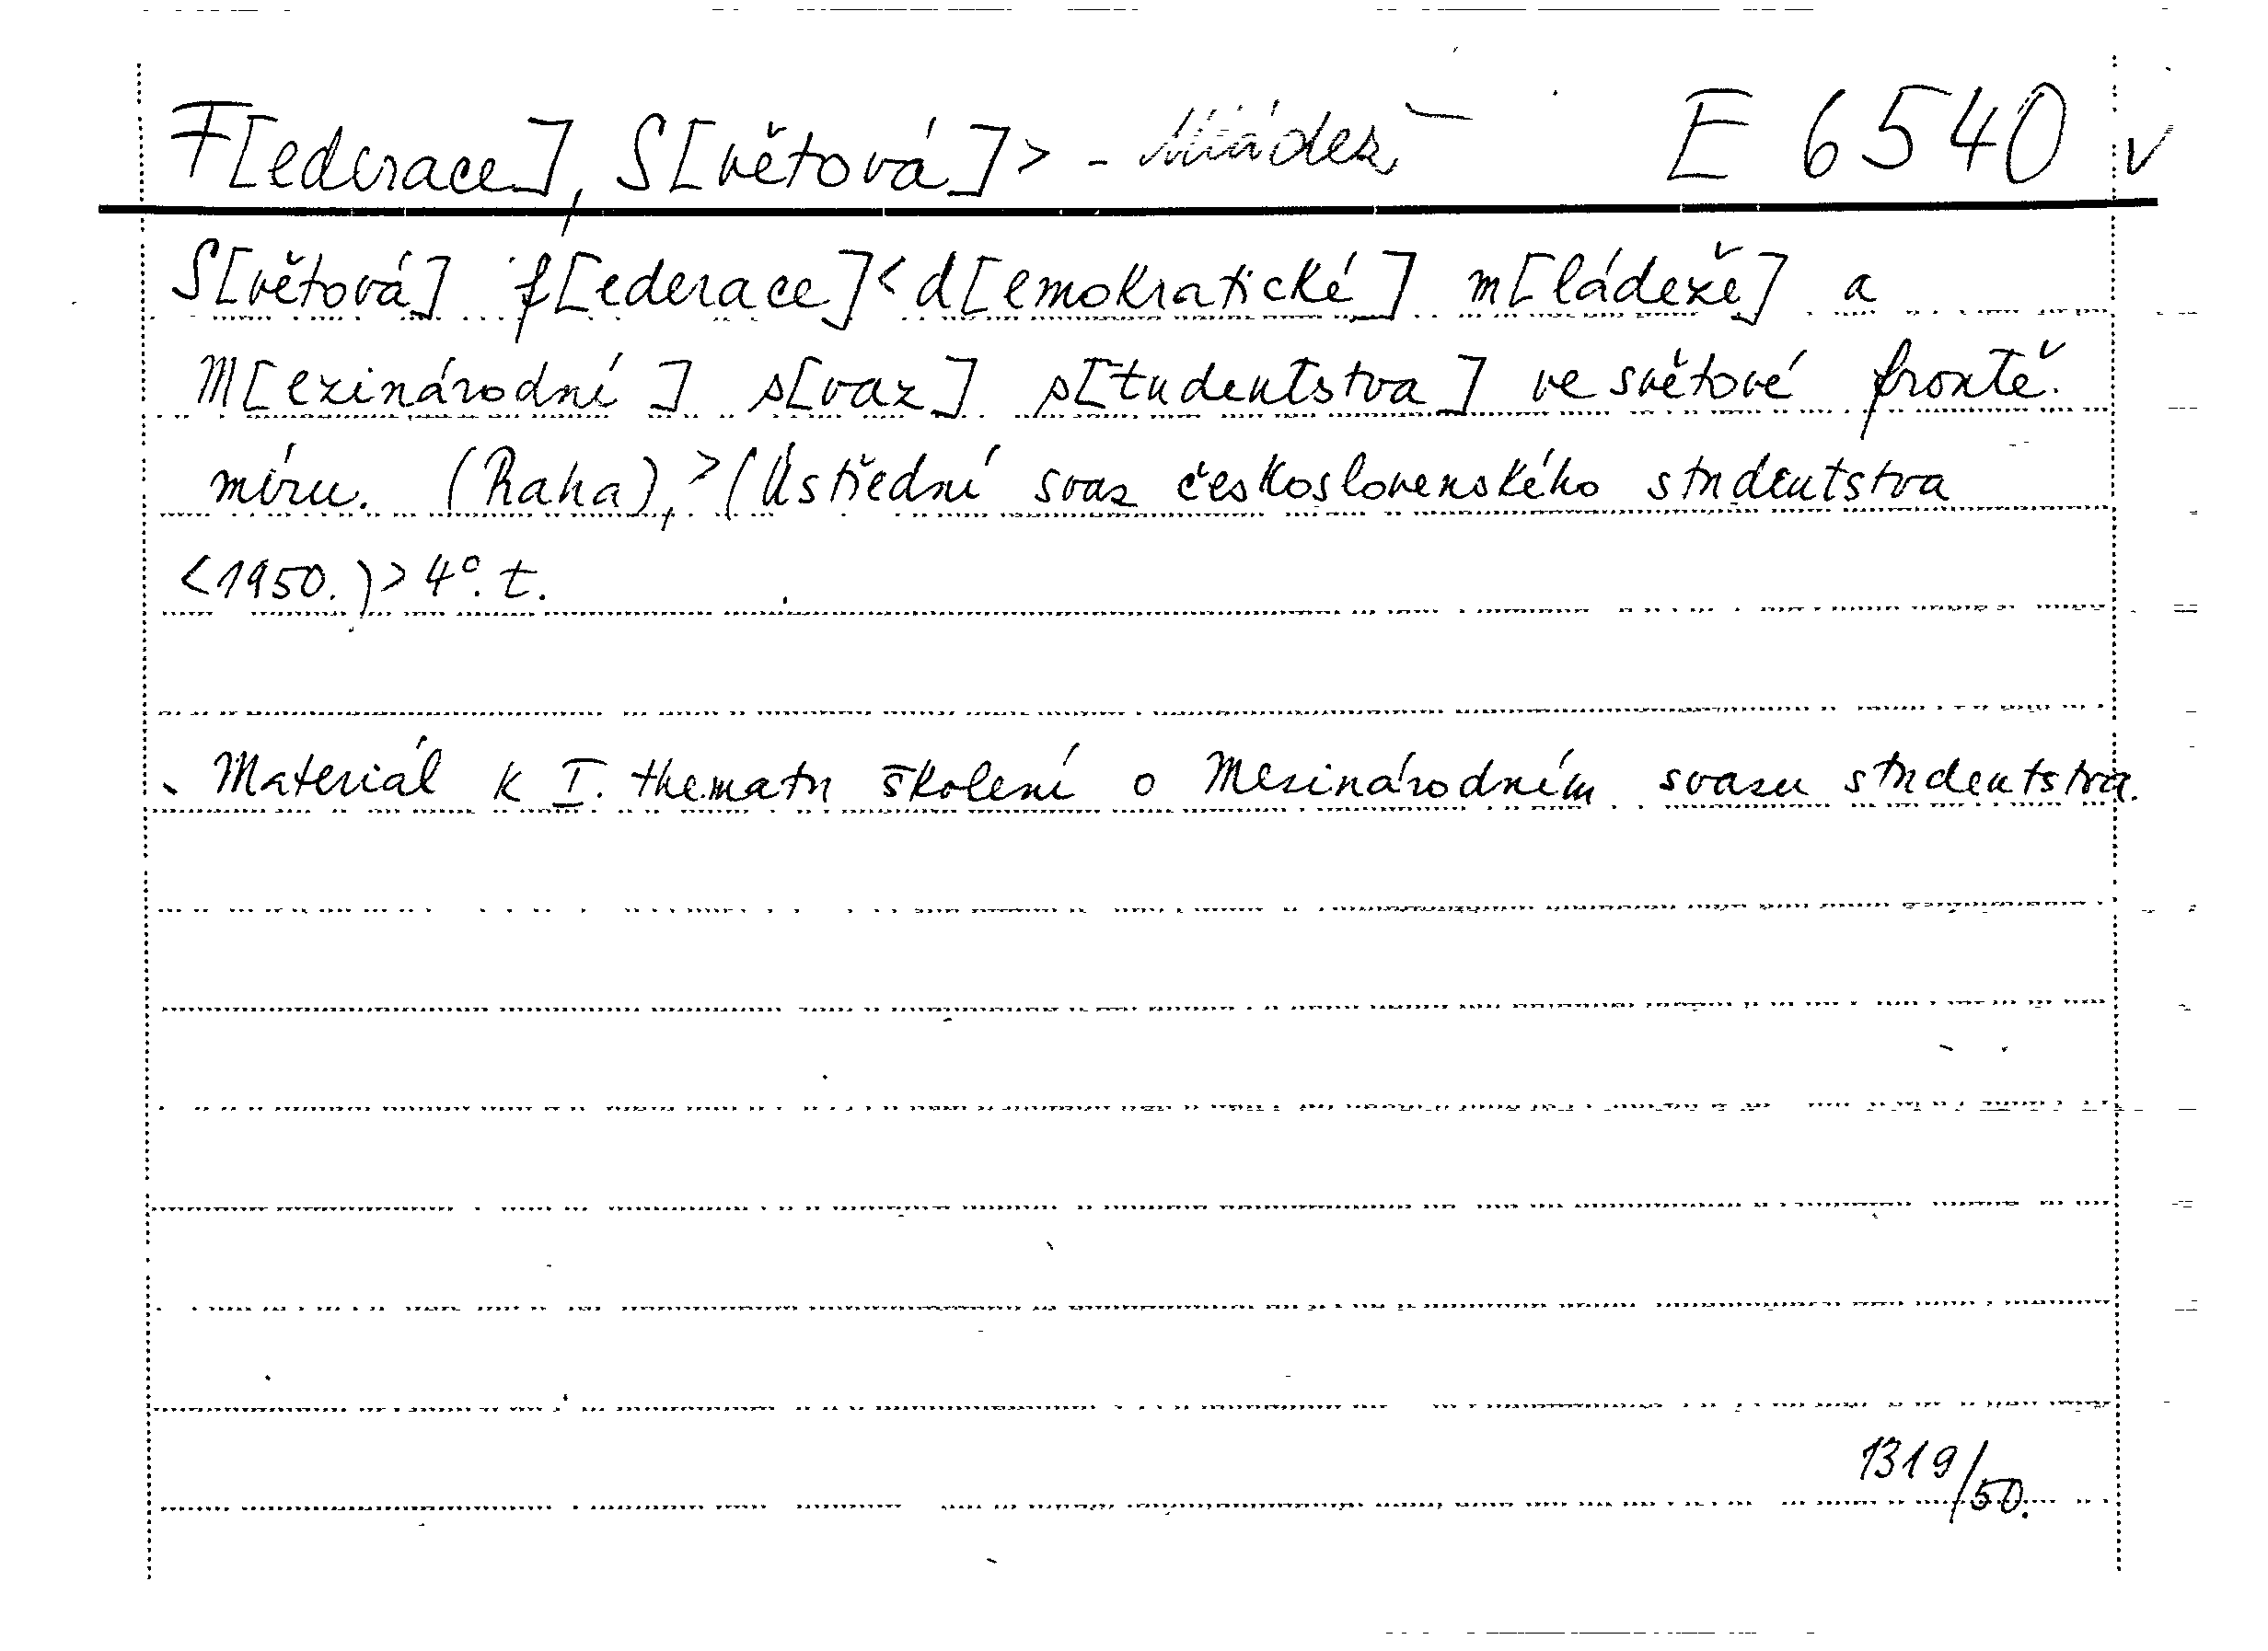 F[ederace], S[větová]> - Mládež E 6540 v
S[větová] f[ederace]< d[emokratické] m[ládeže] a
M[ezinárodní] s[vaz] s[tudentstva] ve světové frontě
míru. (Praha),>(Ústřední svaz československého studentstva
<1950.)> 4°. t.
Materiál k I. thematu školení o Mezinárodním svazu studentstva.
1319/50.